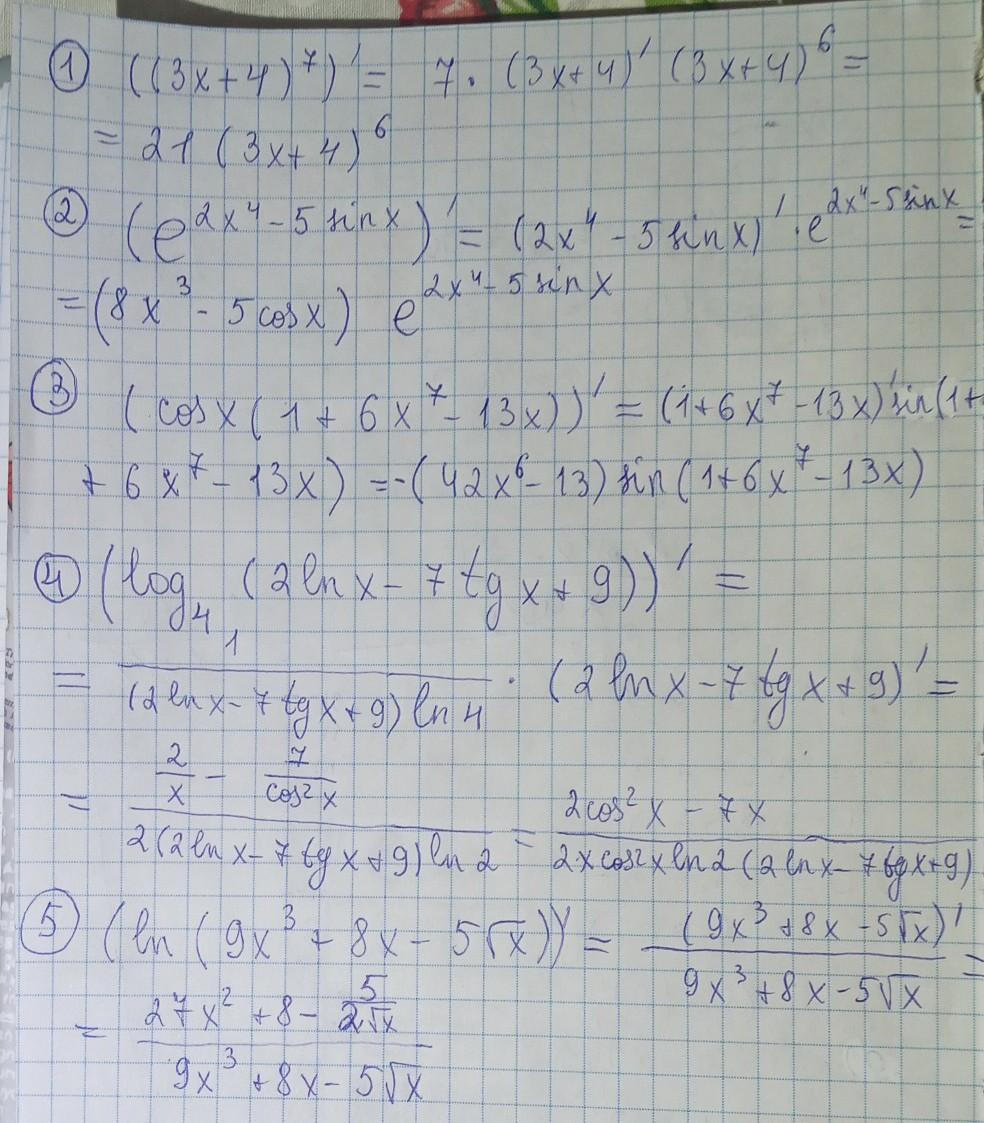 ① ((3x+4)⁷)' = 7 · (3x+4)' (3x+4)⁶ =
= 21 (3x+4)⁶
② (e^(2x⁴ - 5 sin x))' = (2x⁴ - 5 sin x)' · e^(2x⁴ - 5 sin x) =
= (8x³ - 5 cos x) e^(2x⁴ - 5 sin x)
③ (cos x (1 + 6x⁷ - 13x))' = (1+6x⁷ - 13x)' sin(1+
+ 6x⁷ - 13x) = -(42x⁶ - 13) sin(1+6x⁷ - 13x)
④ (log₄ (2 ln x - 7 tg x + 9))' =
= 1/((2 ln x - 7 tg x + 9) ln 4) · (2 ln x - 7 tg x + 9)' =
= (2/x - 7/cos²x)/(2(2 ln x - 7 tg x + 9) ln 2) = (2cos²x - 7x)/(2x cos²x ln 2 (2 ln x - 7 tg x + 9))
⑤ (ln (9x³ + 8x - 5√x))' = (9x³ + 8x - 5√x)'/(9x³ + 8x - 5√x) =
= (27x² + 8 - 5/(2√x))/(9x³ + 8x - 5√x)